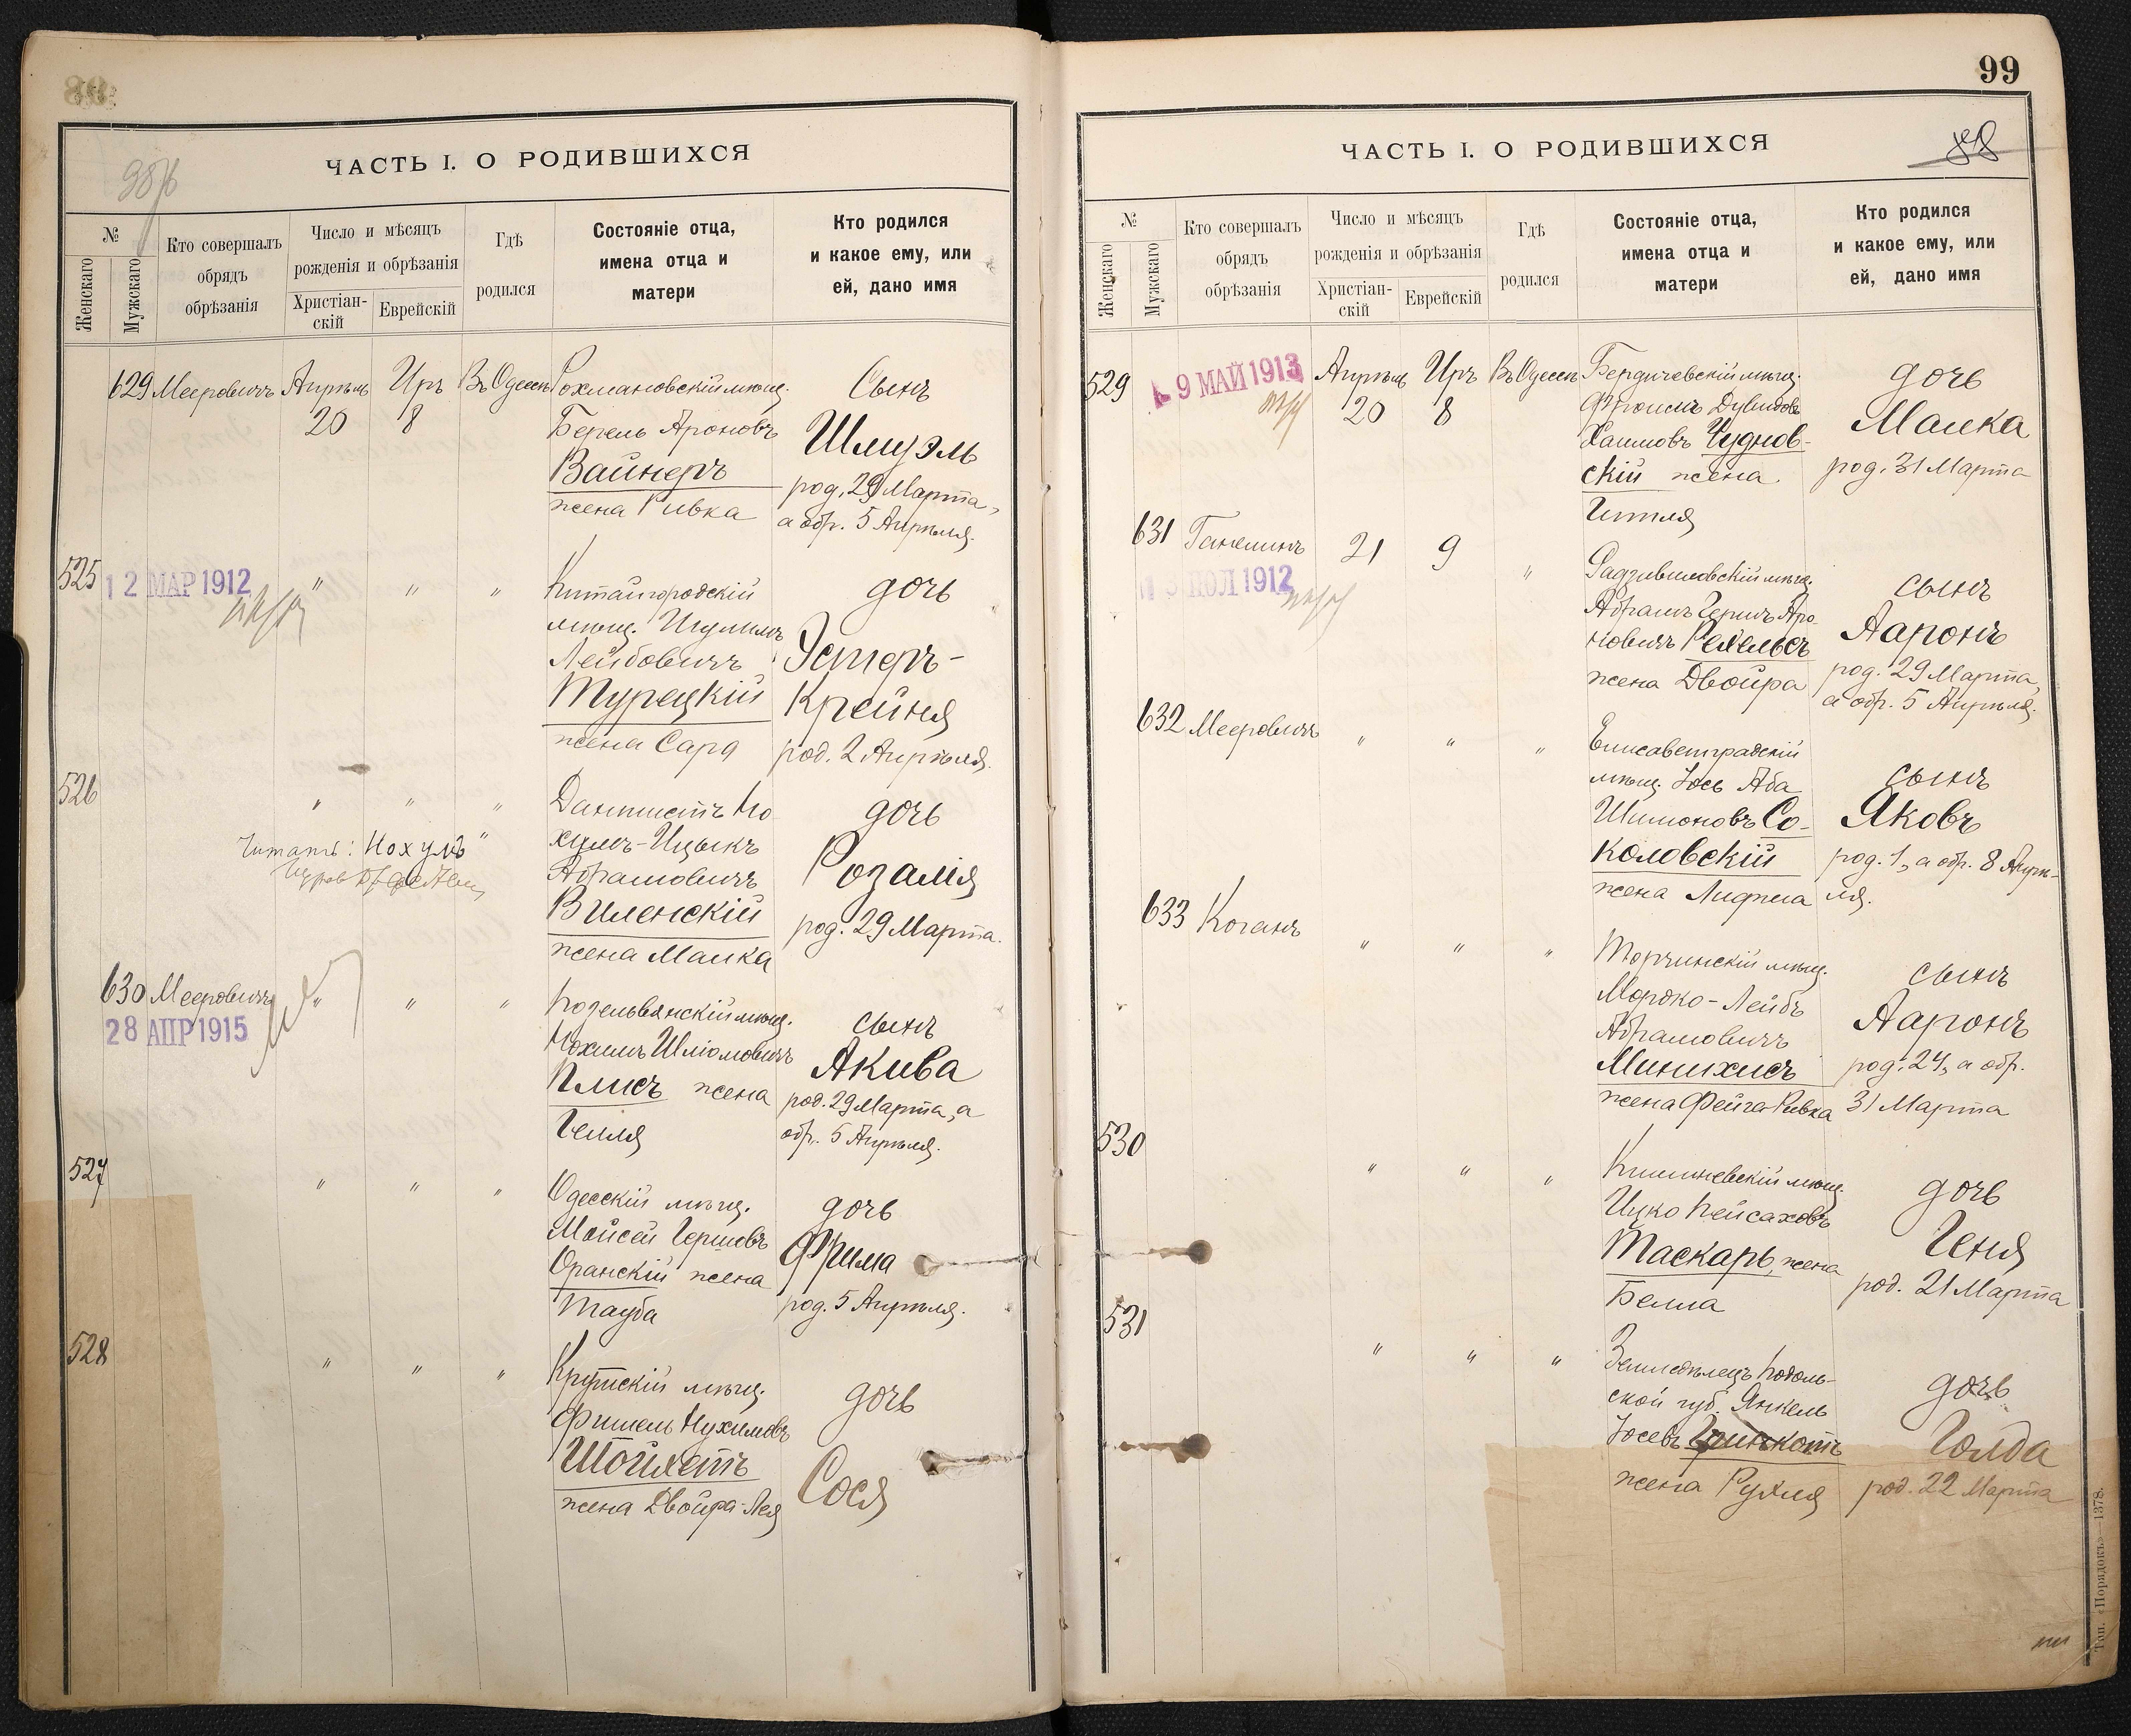 98
98/б
ЧАСТЬ I. О РОДИВШИХСЯ
№
Женскаго
Мужскаго
Кто совершалъ
обрядъ
обрѣзанія
Число и мѣсяцъ
рожденія и обрѣзанія
Христіан-
скій
Еврейскій
Гдѣ
родился
Состояніе отца,
имена отца и
матери
Кто родился
и какое ему, или
ей, дано имя
629 Мееровичъ Апрѣль Иръ Въ Одессѣ Рохмановскій мѣщ. Сынъ
20 8 Берель Ароновъ Шмуэль
Вайнеръ род. 29 Марта,
жена Ривка а обр. 5 Апрѣля.
525 12 МАР 1912 " " " Китайгородскій дочь
мѣщ. Шулимъ Эстеръ-
Лейбовичъ
Турецкій Крейня
жена Сара род. 2 Апрѣля.
526 " " " Дантистъ Но дочь
Читать: Нохумъ хумъ-Ицыкъ
Абрамовичъ Розалія
Виленскій род. 29 Марта.
жена Малка
630 Мееровичъ " " " Козельвянскій мѣщ. сынъ
28 АПР 1915 Нохимъ Шліомовичъ Акива
Плисъ жена род. 29 Марта, а
Геиля обр. 5 Апрѣля.
527 " " " Одесскій мѣщ. дочь
Мойсей Гершовъ Фрима
Оранскій жена
Тауба род. 5 Апрѣля.
528 " " " Крутскій мѣщ. дочь
Фишель Нухимовъ
Шойхетъ Сося
жена Двойра-Лея
99
88
ЧАСТЬ I. О РОДИВШИХСЯ
№
Женскаго
Мужскаго
Кто совершалъ
обрядъ
обрѣзанія
Число и мѣсяцъ
рожденія и обрѣзанія
Христіан-
скій
Еврейскій
Гдѣ
родился
Состояніе отца,
имена отца и
матери
Кто родился
и какое ему, или
ей, дано имя
529 9 МАЙ 1913 Апрѣль Иръ Въ Одессѣ Бердичевскій мѣщ. дочь
20 8 Фроимъ Дувидовъ Малка
Хаимовъ Чуднов-
скій жена род. 31 Марта
Гитля
631 Ганелинъ 21 9 " Радзивиловскій мѣщ. сынъ
ІЮЛ 1912 Абрамъ Гершъ Аро- Ааронъ
новичъ Рехельсъ род. 29 Марта,
жена Двойра а обр. 5 Апрѣля.
632 Мееровичъ " " " Елисаветградскій
мѣщ. Іось Аба сынъ
Шимоновъ Со- Яковъ
коловскій род. 1, а обр. 8 Апрѣ-
жена ля.
633 Коганъ " " " Торчинскій мѣщ. сынъ
Мордко-Лейбъ Ааронъ
Абрамовичъ
Минихисъ род. 24, а обр.
жена Фейга Ривка 31 Марта
530 " " " Кишиневскій мѣщ. дочь
Ицко Пейсаховъ Геня
Таскарь, жена род. 21 Марта
Белла
531 " " " Земледѣлецъ Подоль- дочь
ской губ. Янкель
Іосевъ Голда
жена Рухля род. 22 Марта
Тип. «Порядокъ»—1378.